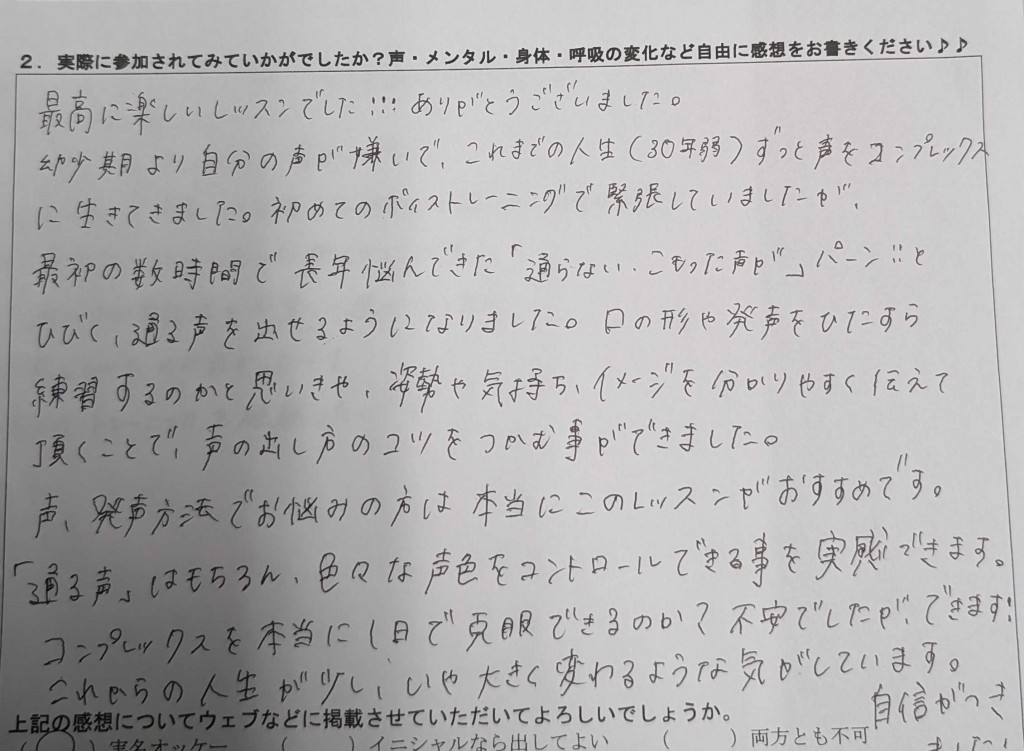 ２．実際に参加されてみていかがでしたか？声・メンタル・身体・呼吸の変化など自由に感想をお書きください♪♪
最高に楽しいレッスンでした!!! ありがとうございました。
幼少期より自分の声が嫌いで、これまでの人生(30年弱)ずっと声をコンプレックス
に生きてきました。初めてのボイストレーニングで緊張していましたが、
最初の数時間で長年悩んできた「通らない、こもった声が」パーン!!と
ひびく、通る声を出せるようになりました。口の形や発声をひたすら
練習するのかと思いきや、姿勢や気持ち、イメージを分かりやすく伝えて
頂くことで、声の出し方のコツをつかむ事ができました。
声、発声方法でお悩みの方は本当にこのレッスンがおすすめです。
「通る声」はもちろん、色々な声色をコントロールできる事を実感できます。
コンプレックスを本当に1日で克服できるのか？不安でしたが、できます!
これからの人生が少し、いや大きく変わるような気がしています。
自信がつき
上記の感想についてウェブなどに掲載させていただいてよろしいでしょうか。
(◯) 実名オッケー ( ) イニシャルなら出してよい ( ) 両方とも不可
ました